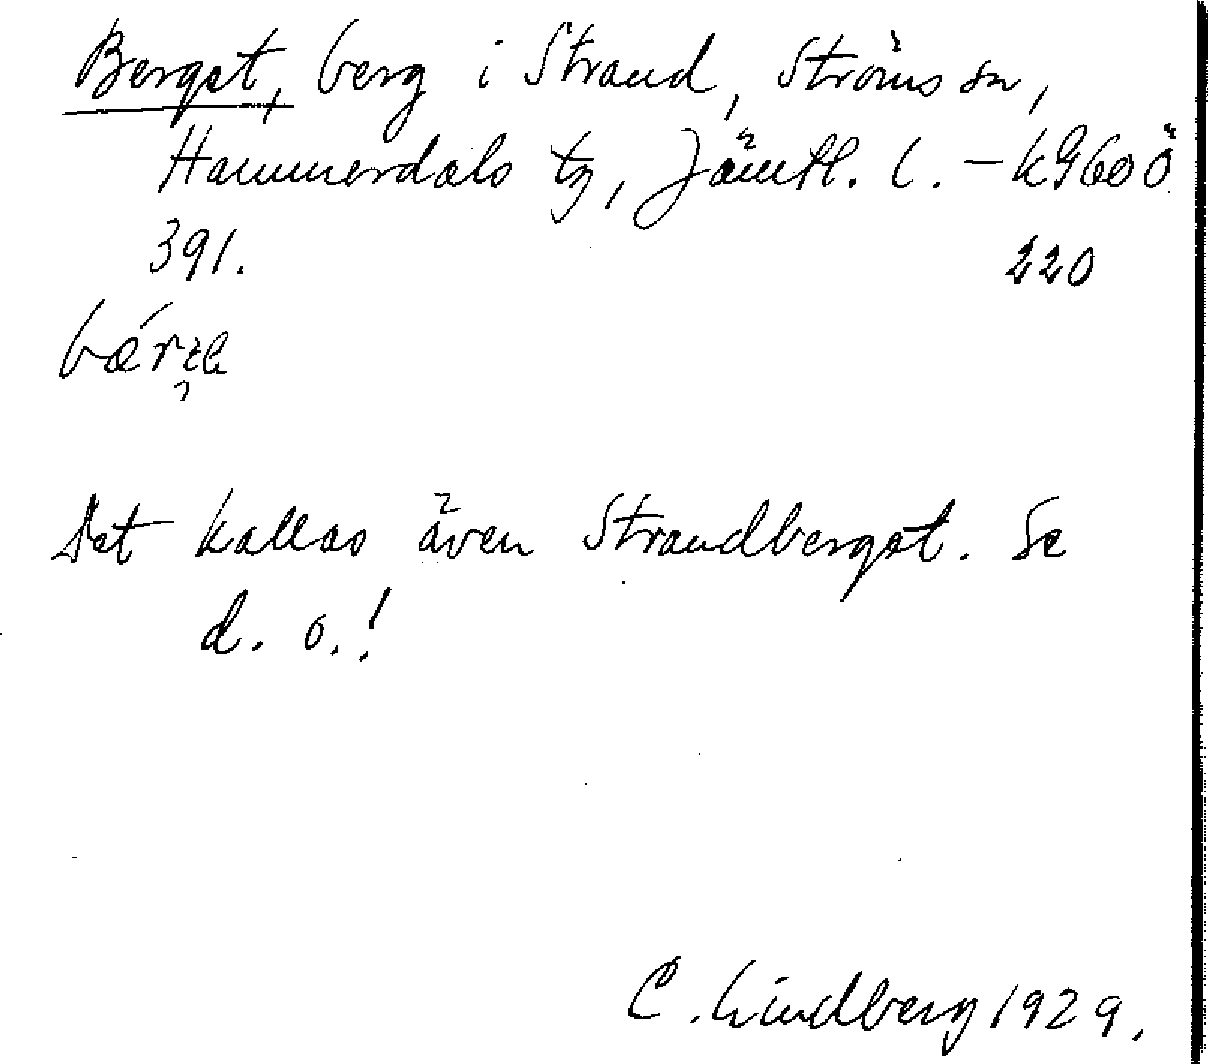 Berget, berg i Strand, Ströms sn,
Hammerdals tg, Jämtl. l. – kG60ö
391. 220
Det kallas även Strandberget. Se
d. o.!
C. Lindberg 1929.